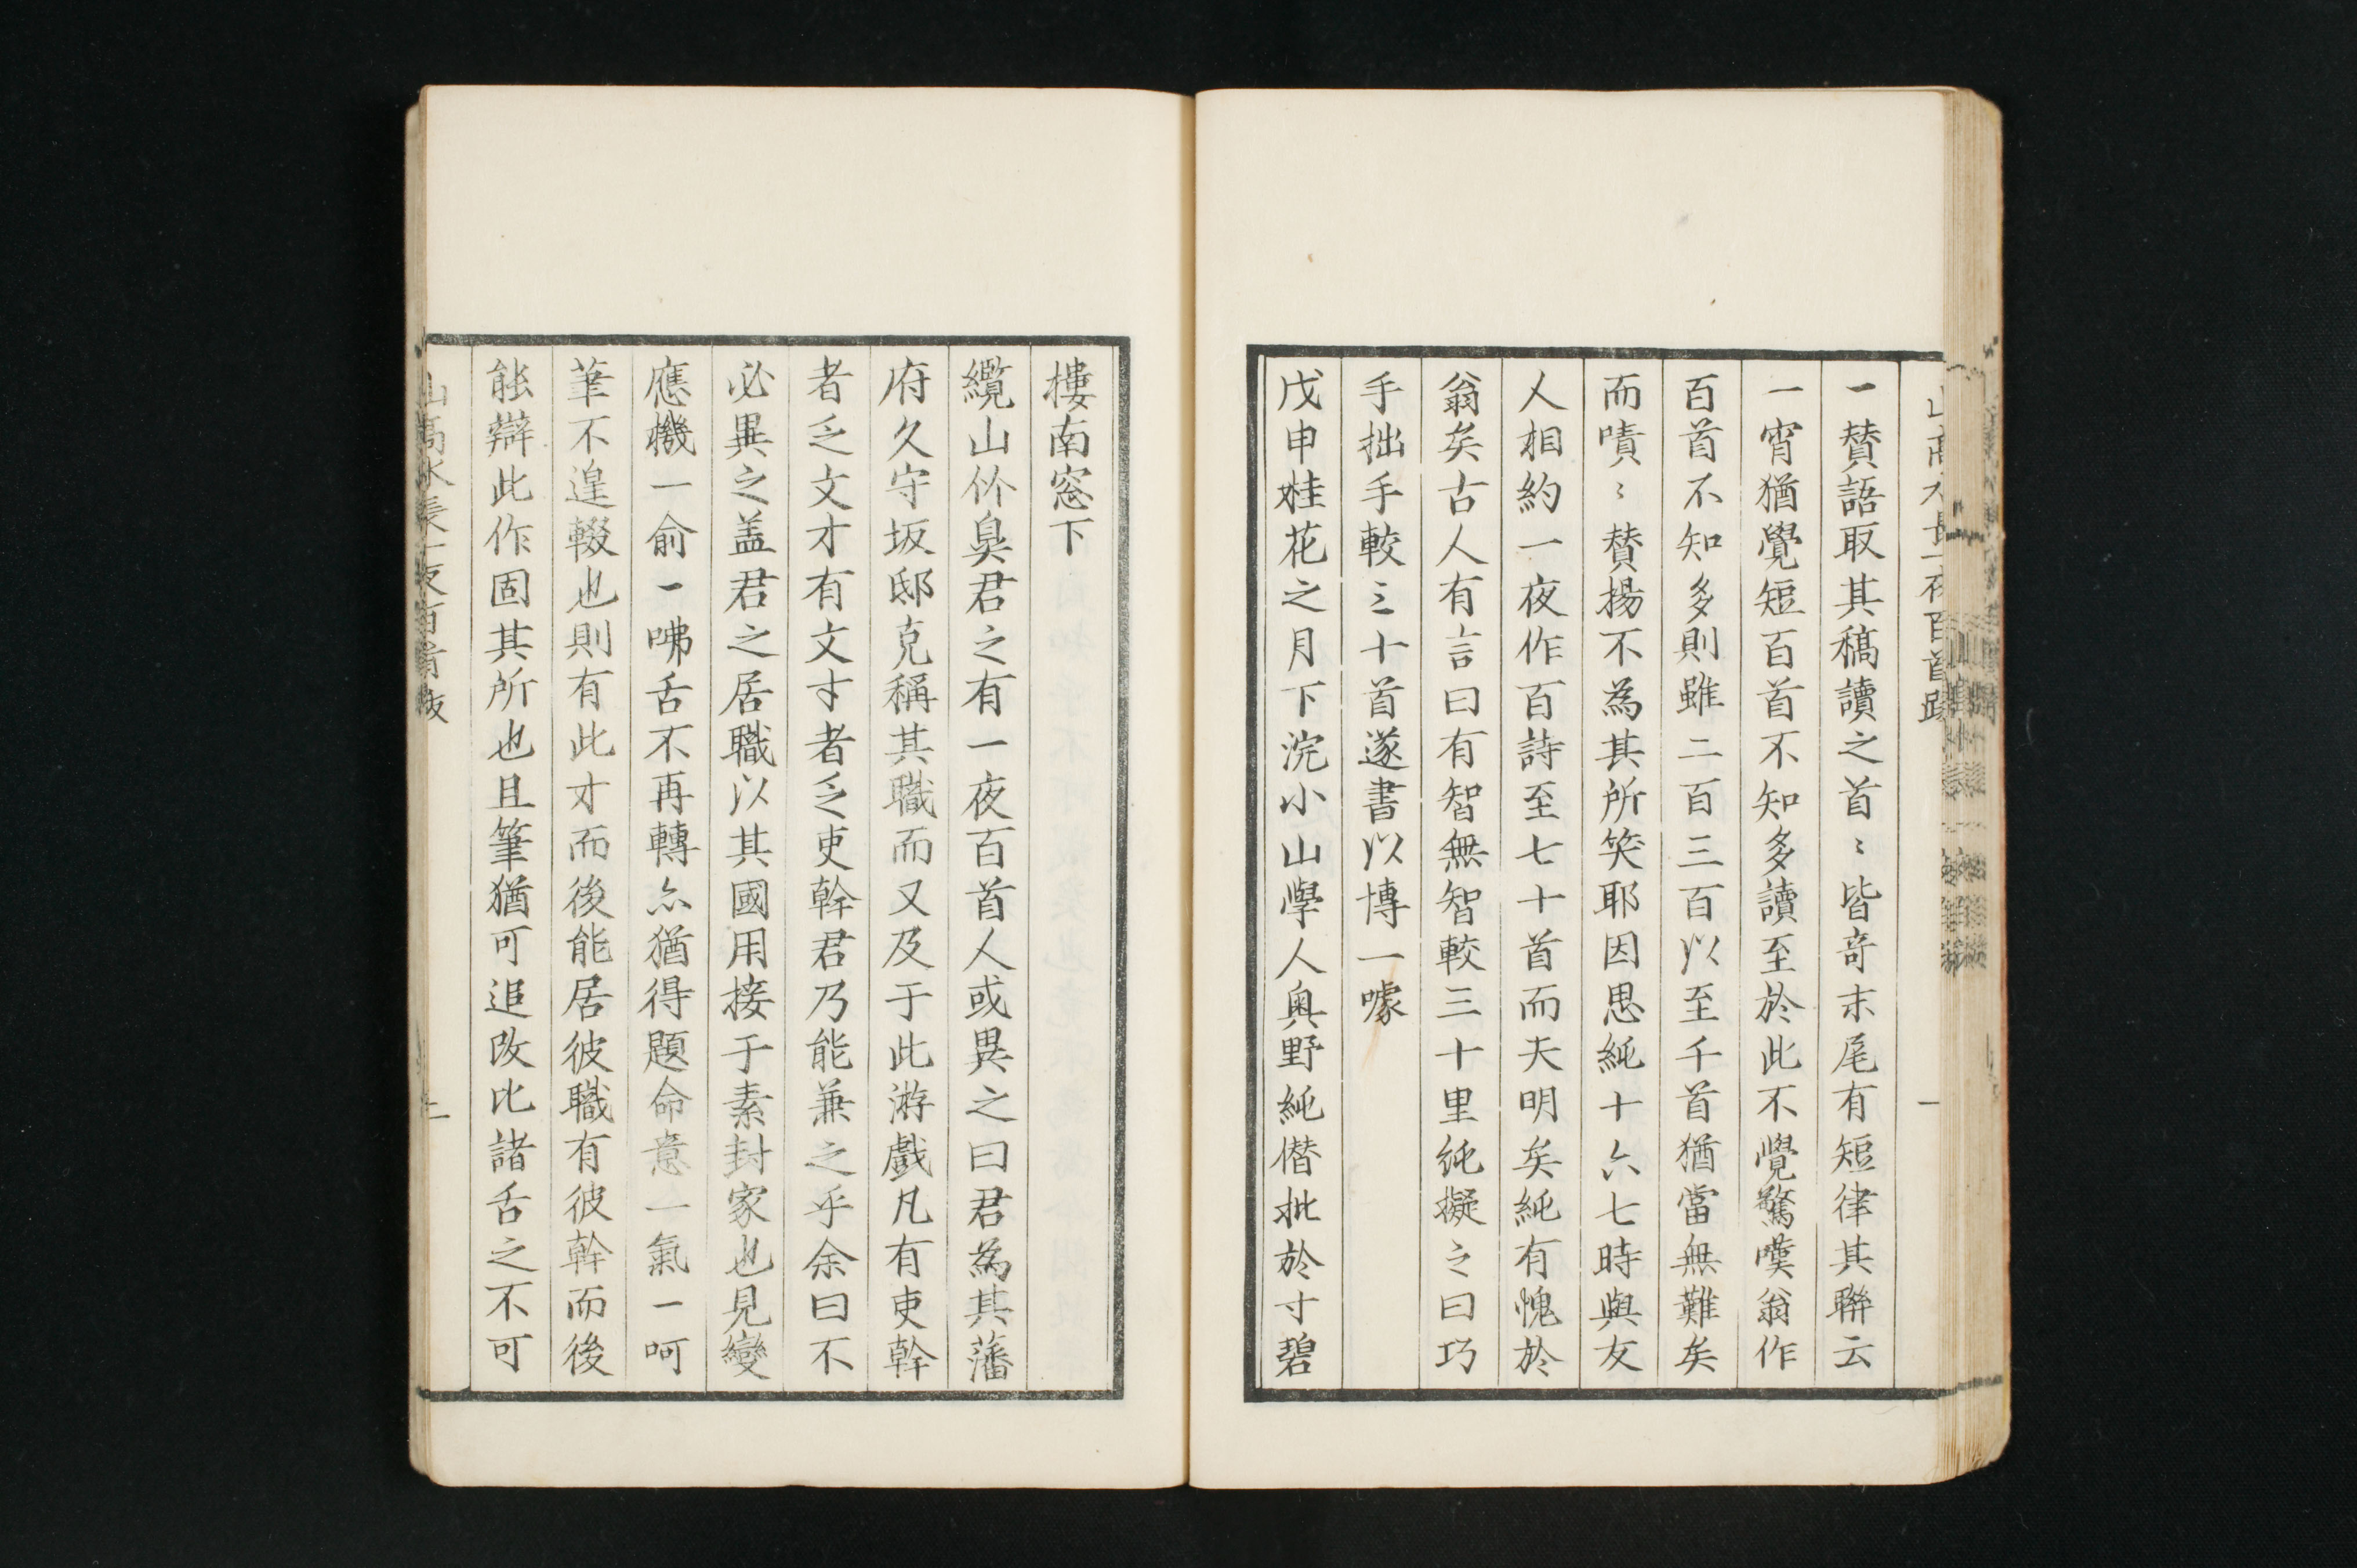 一賛語取其稿讀之首〻皆竒末尾有短律其聯云
一宵猶覺短百首不知多讀至於此不覺驚嘆翁作
百首不知多則雖二百三百以至千首猶當無難矣
而嘖〻賛揚不為其所笑耶因思純十六七時與友
人相約一夜作百詩至七十首而天明矣純有愧於
翁矣古人有言曰有智無智較三十里純擬之曰巧
手拙手較三十首遂書以博一噱
戊申桂花之月下浣小山學人奥野純僭批於寸碧
樓南窓下
纜山仦臭君之有一夜百首人或異之曰君為其藩
府久守坂邸克稱其職而又及于此游戲凡有吏幹
者乏文才有文才者乏吏幹君乃能兼之乎余曰不
必異之盖君之居職以其國用接于素封家也見變
應機一俞一咈舌不再轉亦猶得題命意一氣一呵
筆不遑輟也則有此才而後能居彼職有彼幹而後
能辯此作固其所也且筆猶可追改比諸舌之不可
山高水長一夜百首跋
二